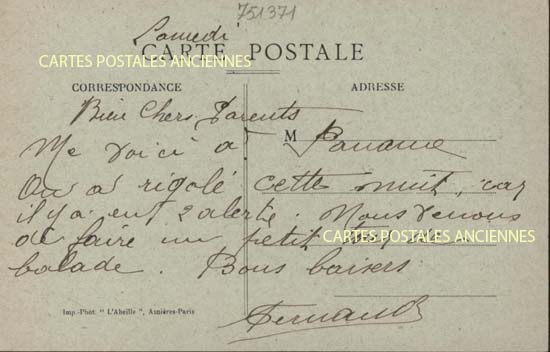 751371
Samedi
CARTE POSTALE
CARTES POSTALES ANCIENNES
CORRESPONDANCE
ADRESSE
Bien Chers Parents
Me voici à M Paname
On a rigolé cette nuit, car
il y a eut 2 alerte. Nous venons
de faire un petit
CARTES POSTALES ANCIENNES
balade. Bons baisers
Imp.-Phot. " L'Abeille ", Asnières-Paris
Fernand